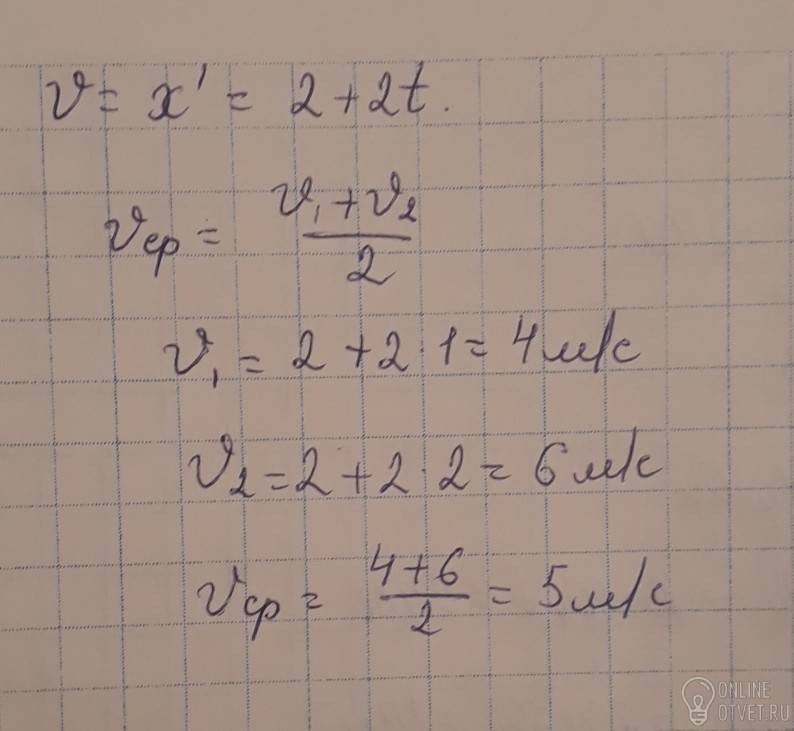 v = x' = 2 + 2t.
vср = (v₁ + v₂)/2
v₁ = 2 + 2 · 1 = 4 м/с
v₂ = 2 + 2 · 2 = 6 м/с
vср = (4 + 6)/2 = 5 м/с
ONLINE
OTVET.RU